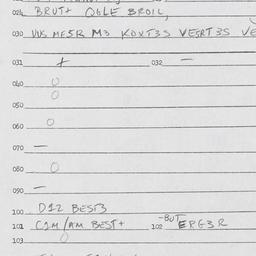 024 BRUT+ OGLE BROIL,
030 VUS MESR M3 KOVT3S VESRT3S
031 + 032 —
040 O
050 O
060 O
070 —
080 O
090 —
100 D12 BEST3
101 C1M/AM BEST+ 102 -BUT EPG3R
103 O